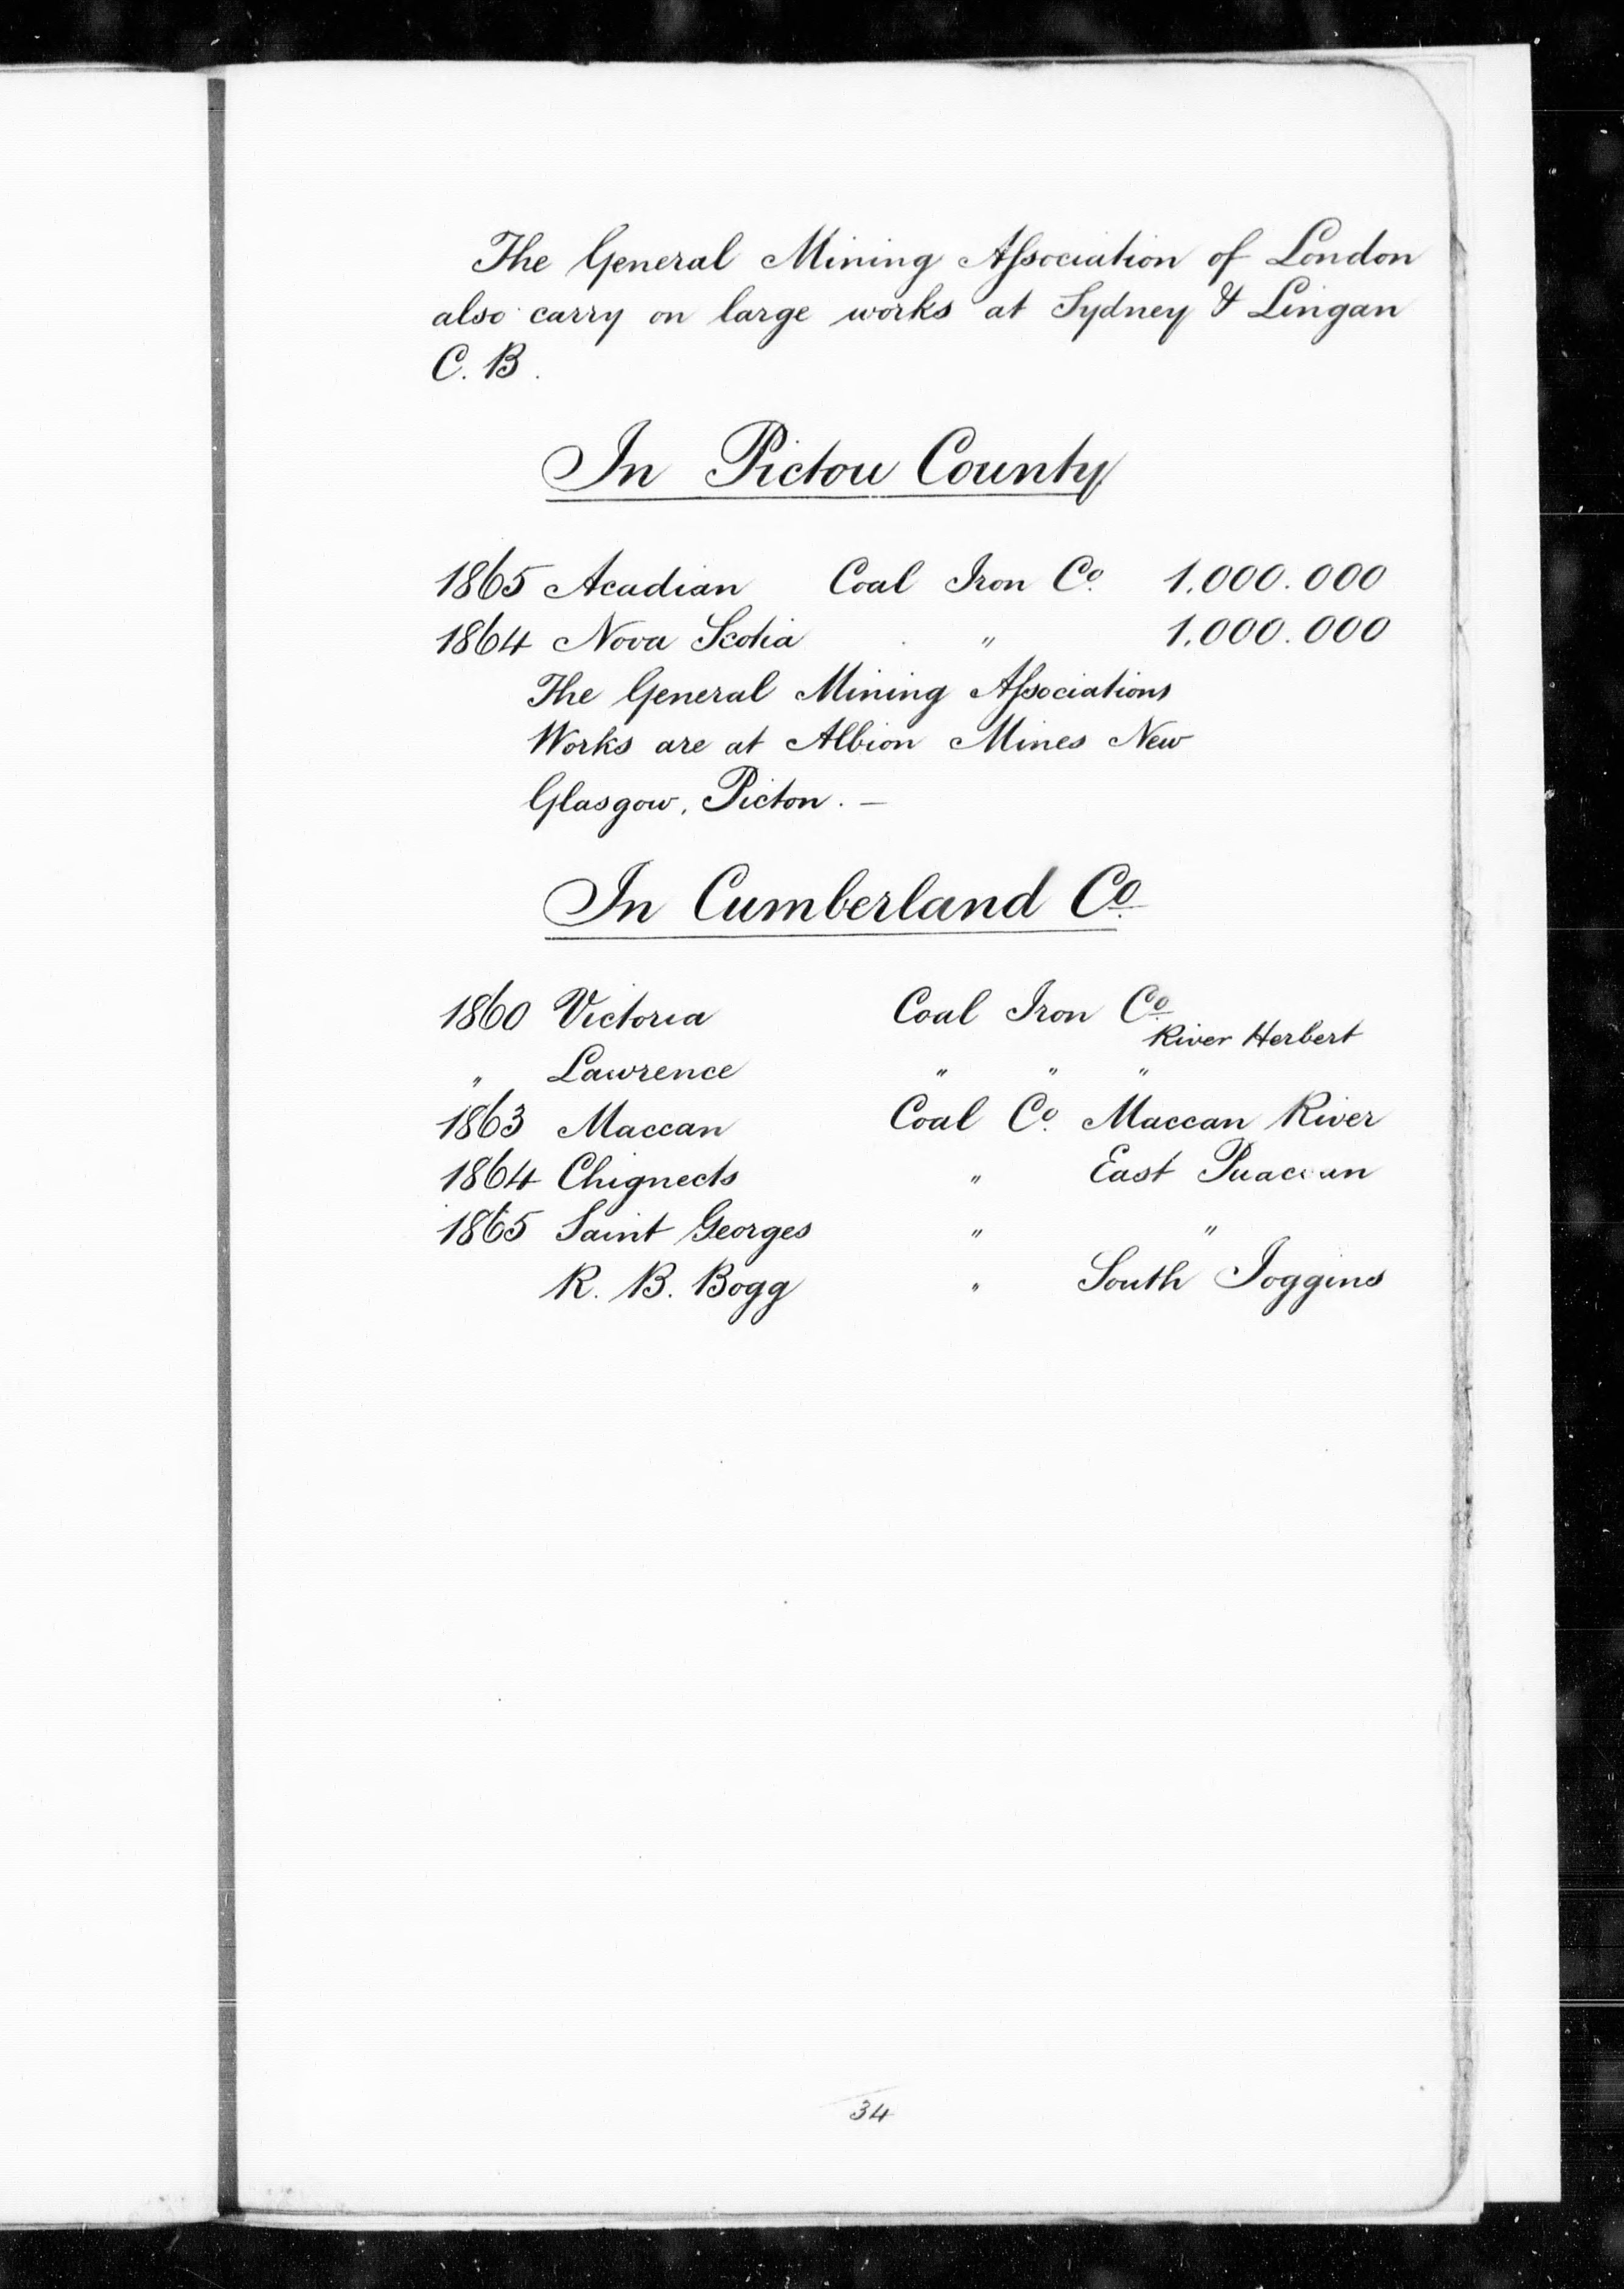 The General Mining Association of London
also carry on large works at Sydney & Lingan
C. B.
In Pictou County
1865 Acadian Coal Iron Co. 1.000.000
1864 Nova Scotia " 1.000.000
The General Mining Associations
Works are at Albion Mines New
Glasgow, Picton. —
In Cumberland Co.
1860 Victoria Coal Iron Co.
River Herbert
" Lawrence " " "
1863 Maccan Coal Co. Maccan River
1864 Chignects " East
1865 Saint Georges " "
R. B. Bogg " South Joggins
34